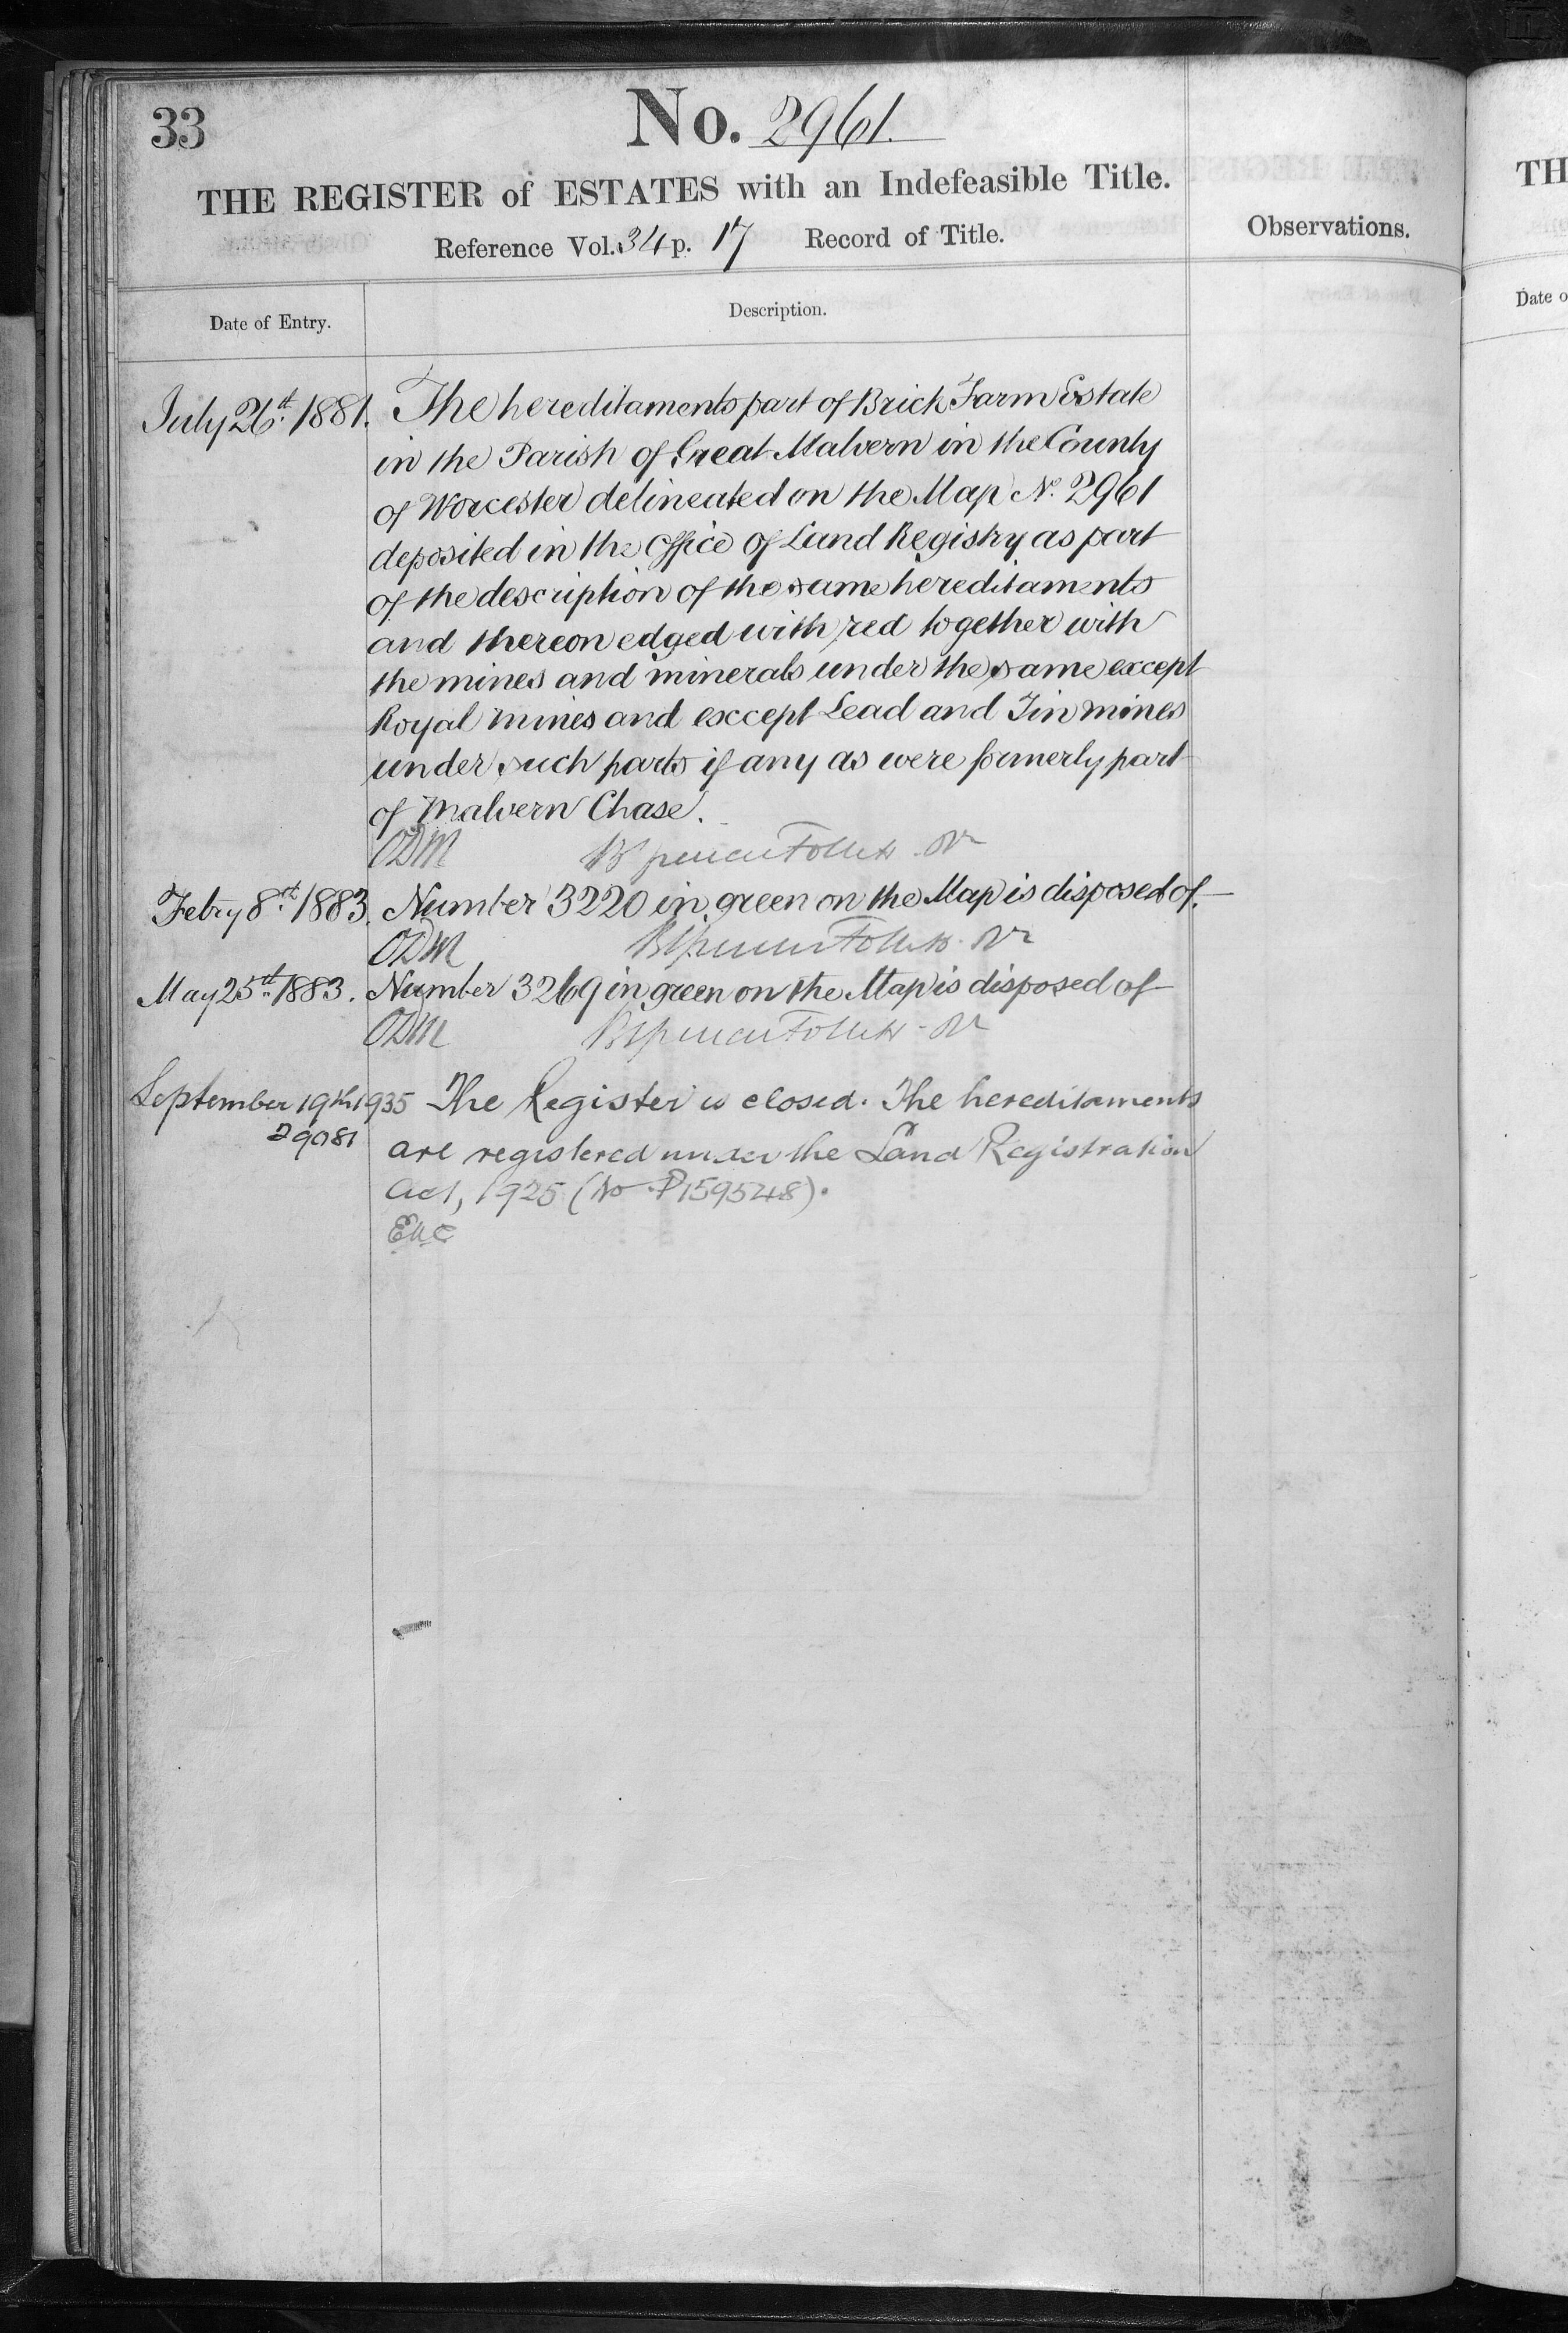 33
No. 2961.
THE REGISTER of ESTATES with an Indefeasible Title.
Reference Vol. 34 p. 17 Record of Title.
Observations.
Date of Entry.
Description.
July 26th 1881. The hereditaments part of Brick Farm Estate
in the Parish of Great Malvern in the County
of Worcester delineated on the Map No. 2961
deposited in the Office of Land Registry as part
of the description of the same hereditaments
and thereon edged with red together with
the mines and minerals under the same except
Royal mines and except Lead and Tin mines
under such parts if any as were formerly part
of Malvern Chase.
ODM
Febry 8th 1883. Number 3220 in green on the Map is disposed of.
ODM
May 25th 1883. Number 3269 in green on the Map is disposed of
ODM
September 19th 1935 The Register is closed. The hereditaments
29081 are registered under the Land Registration
Act, 1925 (No P159548).
TH
Date o